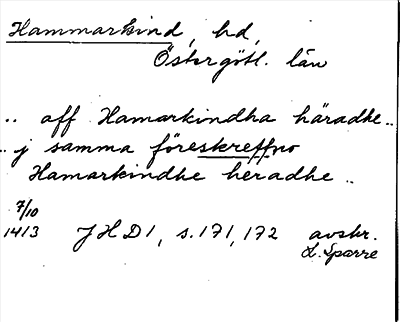 Hammarkind, hd,
Östergötl. län
.. aff Hamarkindha häradhe..
.. j samma föreskreffno
Hamarkindhe heradhe ..
7/10
1413 JHD1, s. 171, 172 avskr.
L. Sparre